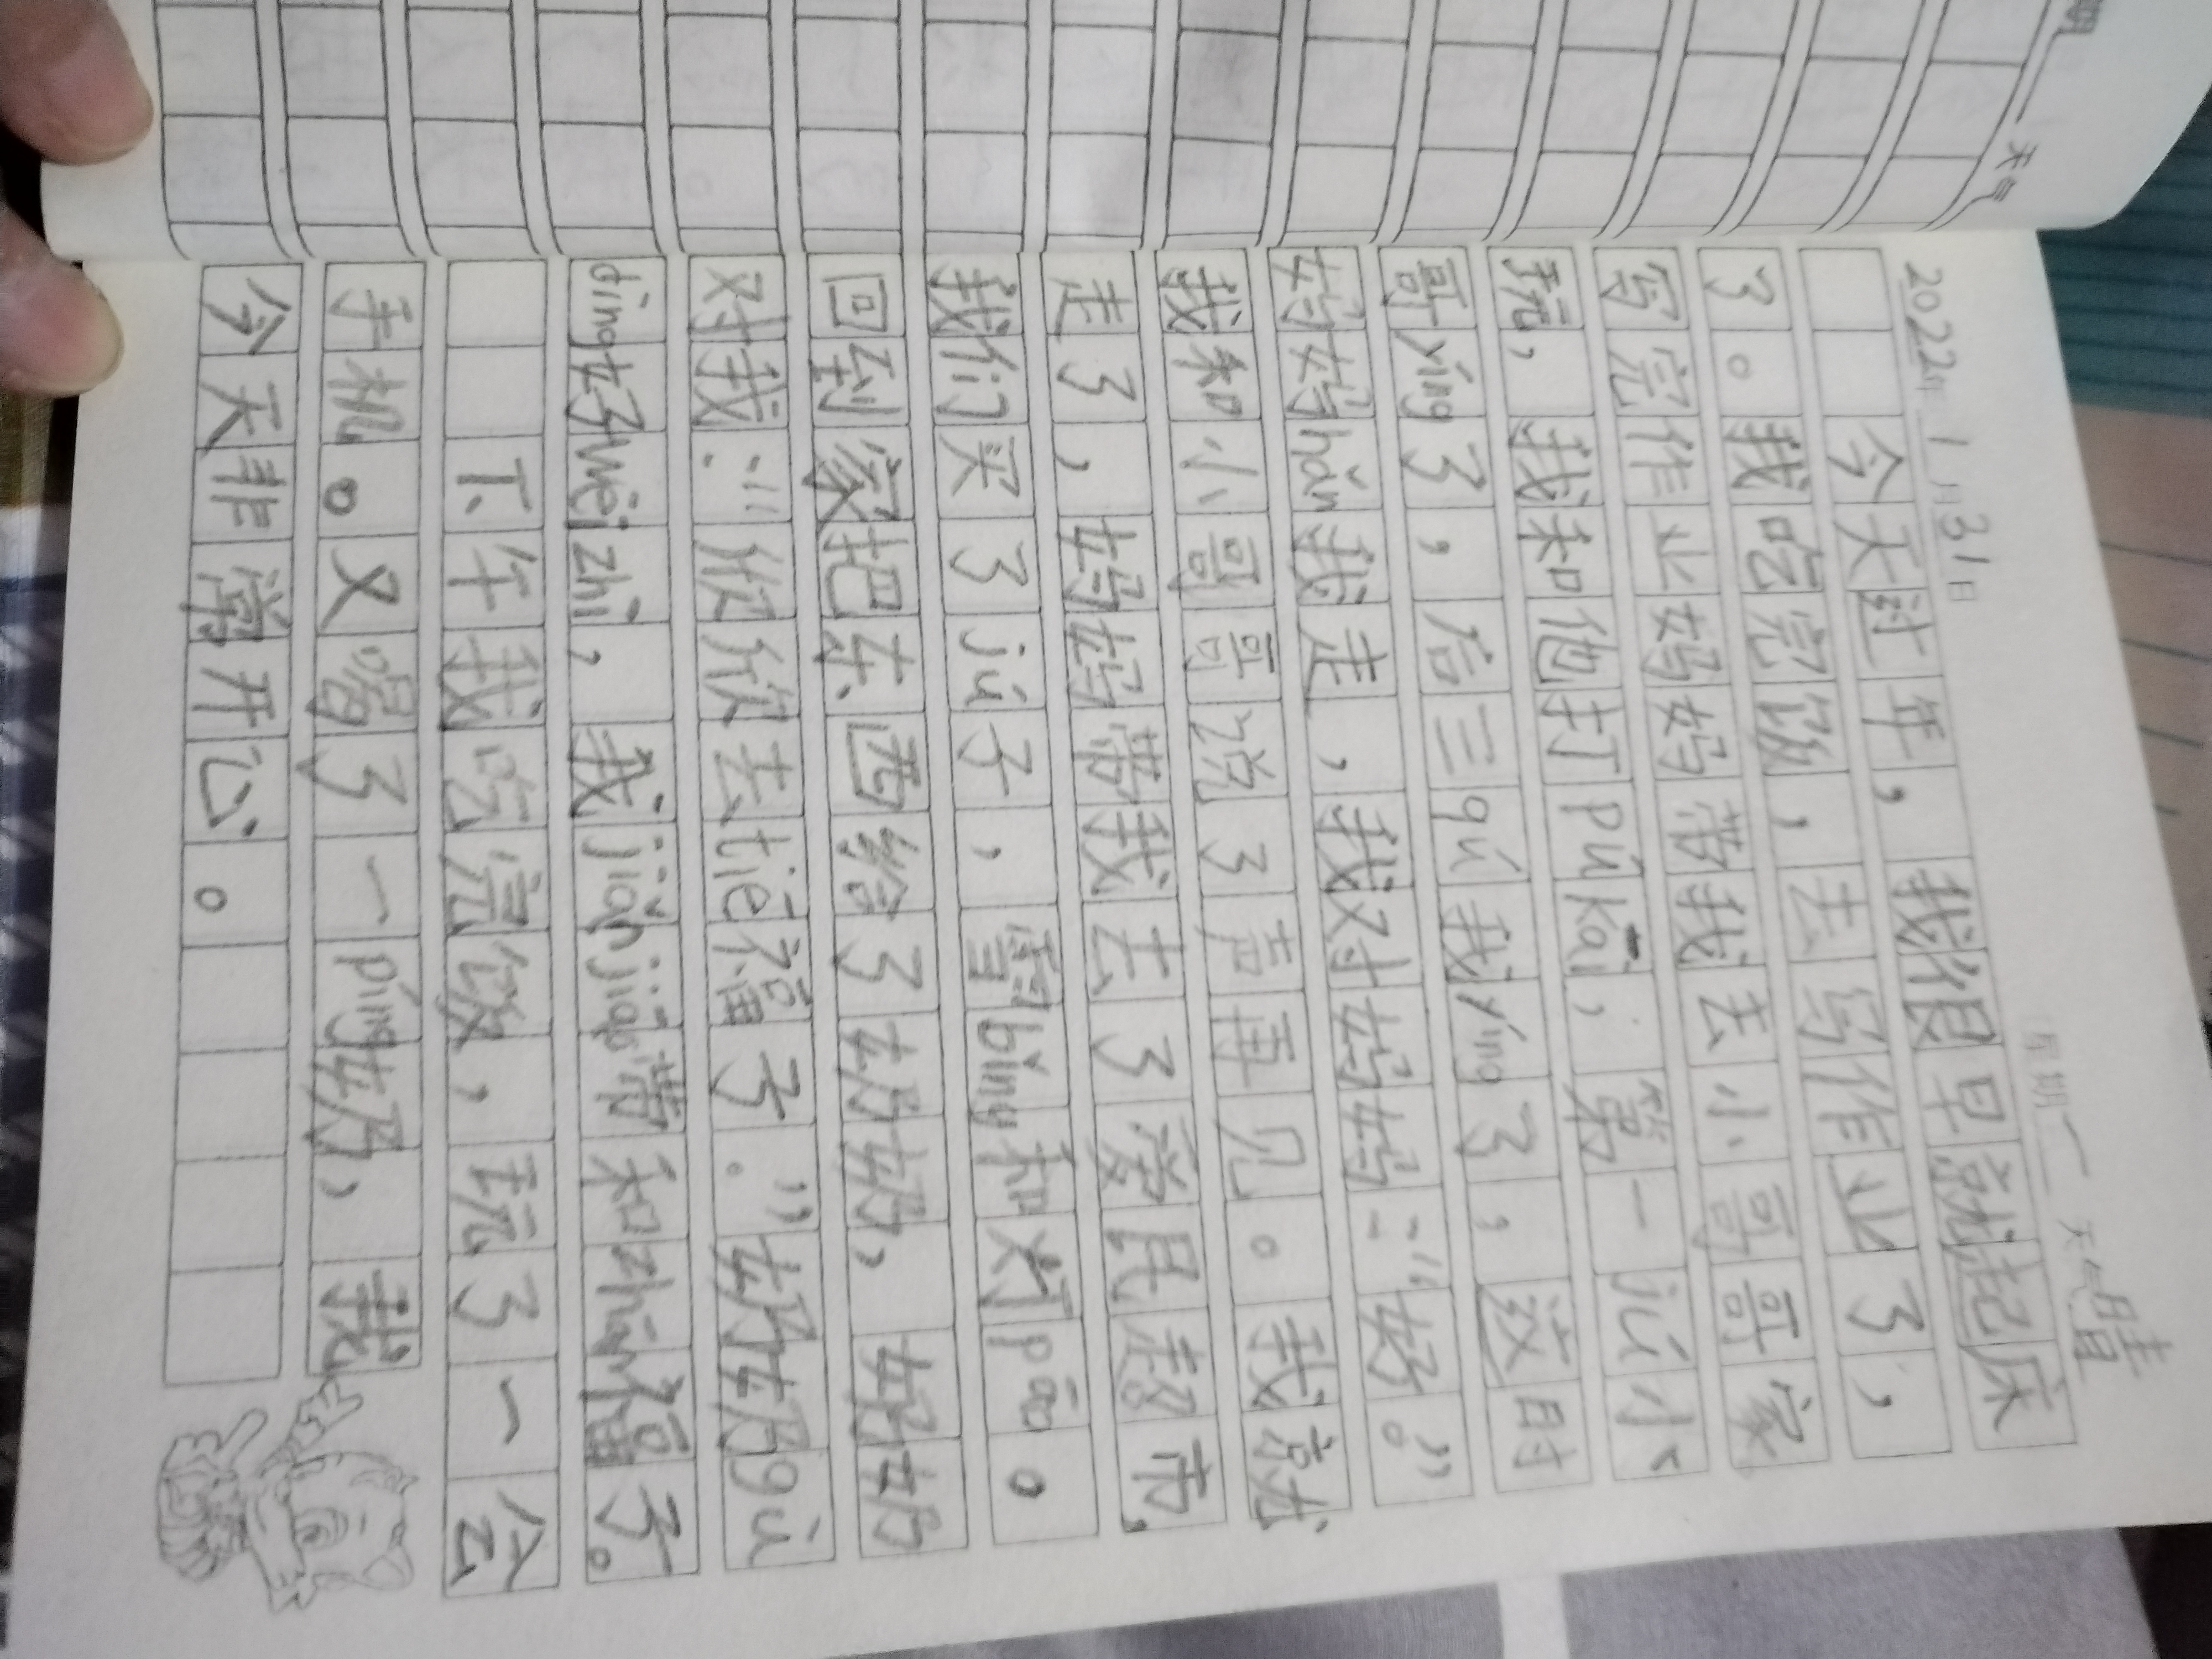 2022年1月31日 星期一 天气晴
今天过年，我很早就起床
了。我吃完饭，去写作业了，
写完作业妈妈带我去小哥哥家
玩，我和他打pú kāi，第一jú小
哥yíng了，后三qú我yíng了，这时
妈妈hǎn我走，我对妈妈：“好。”
我和小哥哥说了声再见。我就
走了，妈妈带我去了爱民超市，
我们买了jú子，雪bīng和灯pāo。
回到家把东西给了奶奶，奶奶
对我：“欣欣去tiē福子。”奶奶gù
dìng好wèi zhì，我jiǎn jiāo带和zhān福子。
下午我吃完饭，玩了一会
手机。又喝了一píng奶，我
今天非常开心。
天气